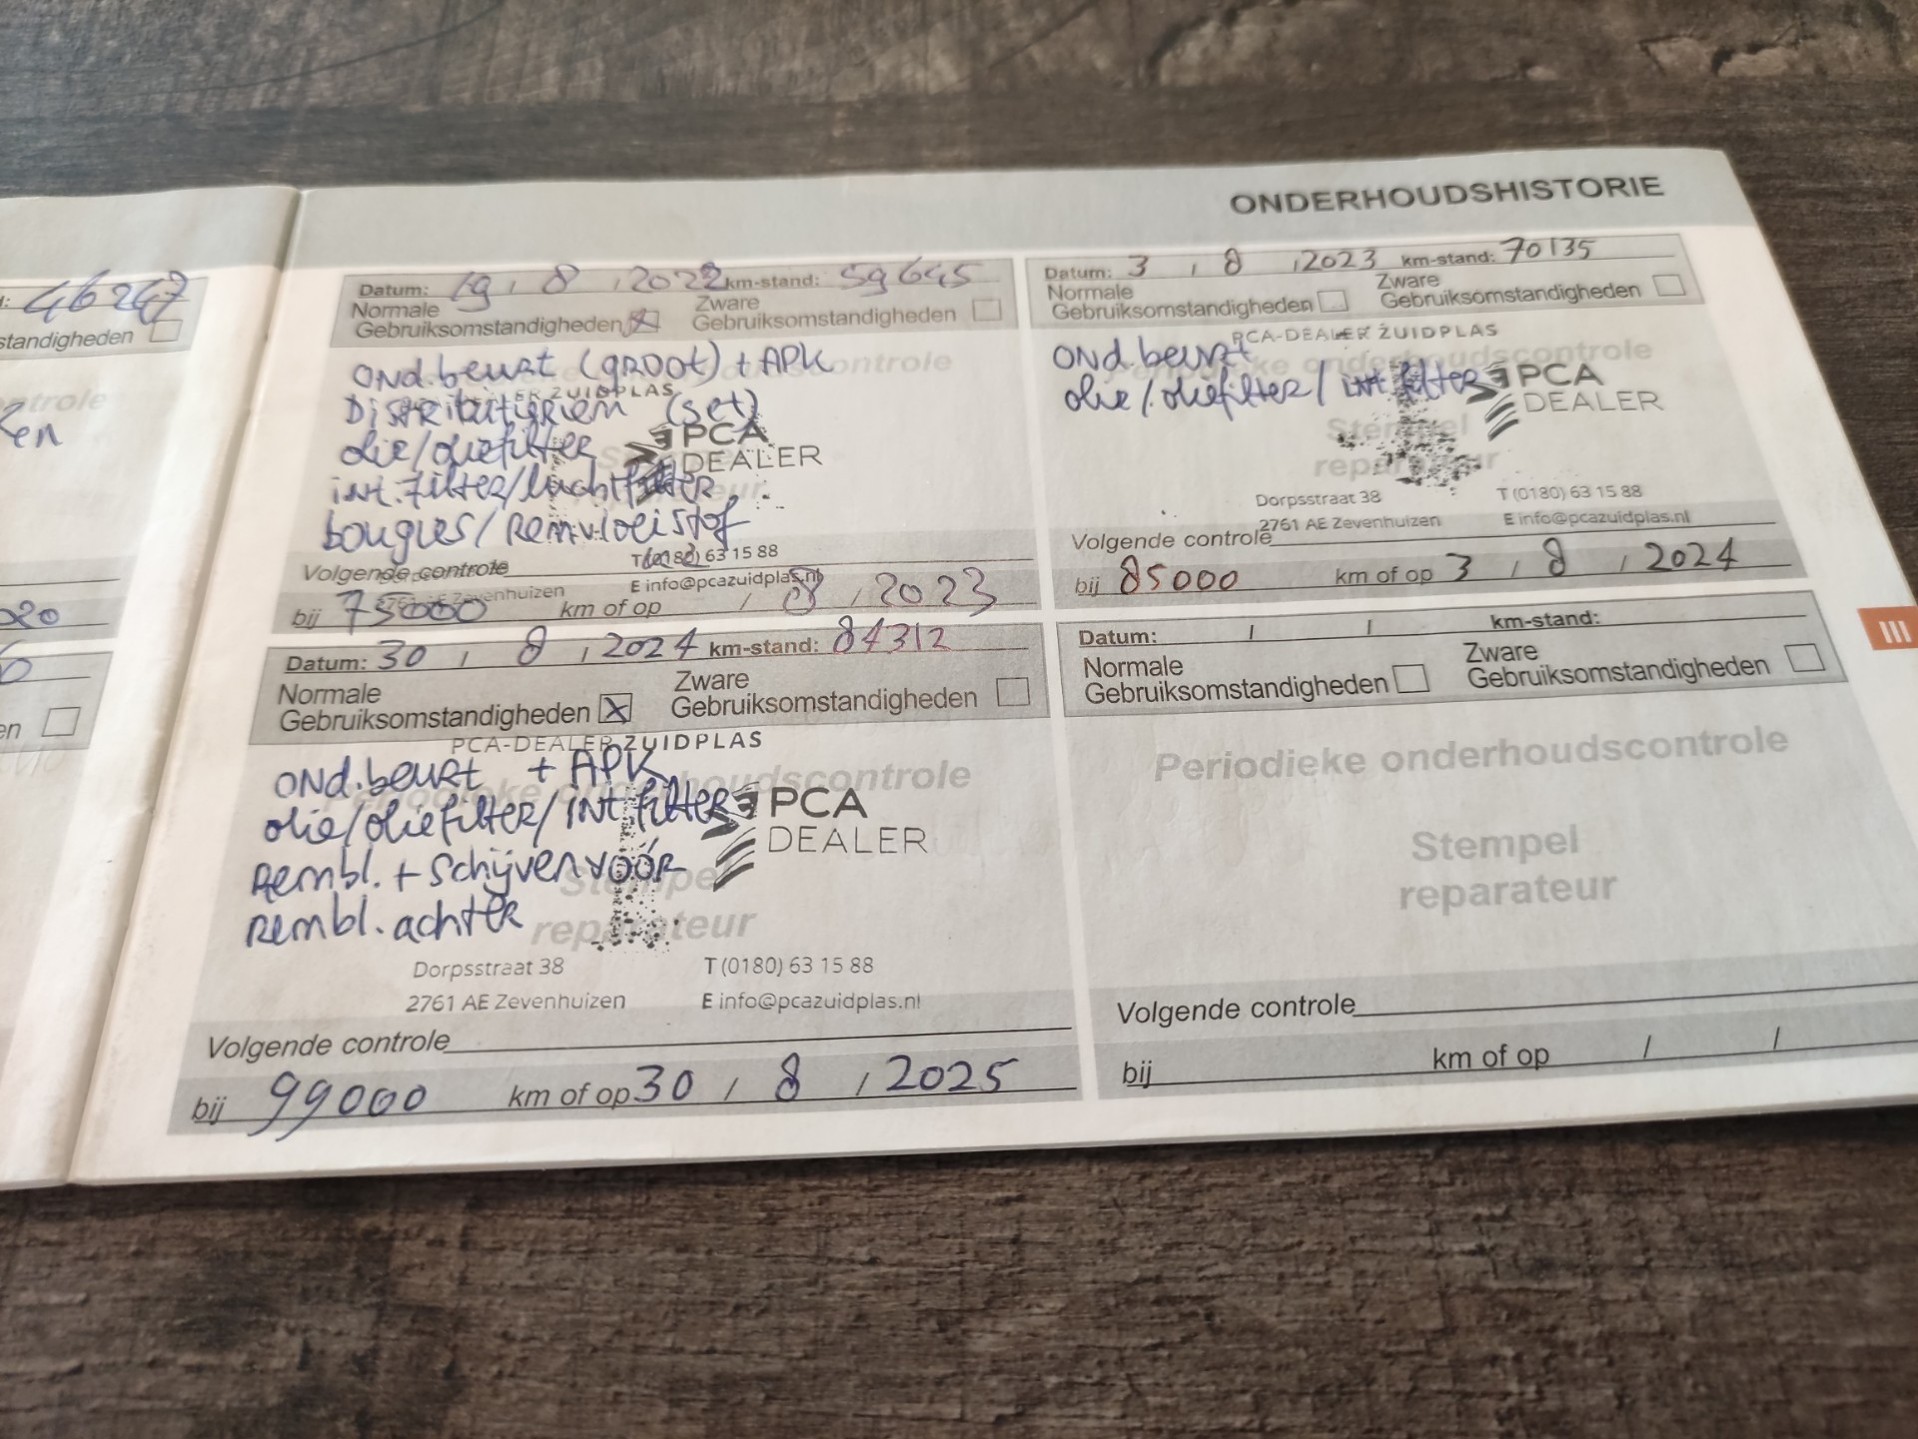 ONDERHOUDSHISTORIE
46247
standigheden
ntrole
en
Datum: 19 / 8 / 2022 km-stand: 59645
Normale Gebruiksomstandigheden Zware Gebruiksomstandigheden
OND.beurt (groot) + APK
Distributieriem (set)
olie/oliefilter
int.filter/luchtfilter
bougies/Remvloeistof
PCA
DEALER
T (0180) 63 15 88
E info@pcazuidplas.nl
Volgende controle
bij 75000 km of op / 8 / 2023
Datum: 3 / 8 / 2023 km-stand: 70135
Normale Gebruiksomstandigheden Zware Gebruiksomstandigheden
PCA-DEALER ZUIDPLAS
OND.beurt
olie/oliefilter/int filter
PCA
DEALER
Stempel
reparateur
Dorpsstraat 38 T (0180) 63 15 88
2761 AE Zevenhuizen E info@pcazuidplas.nl
Volgende controle
bij 85000 km of op 3 / 8 / 2024
Datum: 30 / 8 / 2024 km-stand: 84312
Normale Gebruiksomstandigheden X Zware Gebruiksomstandigheden
PCA-DEALER ZUIDPLAS
OND.beurt + APK
olie/oliefilter/int.filter
Rembl. + schijven vóór
rembl. achter
PCA
DEALER
Stempel
reparateur
Dorpsstraat 38 T (0180) 63 15 88
2761 AE Zevenhuizen E info@pcazuidplas.nl
Volgende controle
bij 99000 km of op 30 / 8 / 2025
Datum: / / km-stand:
Normale Gebruiksomstandigheden Zware Gebruiksomstandigheden
Periodieke onderhoudscontrole
Stempel
reparateur
Volgende controle
bij km of op / /
III